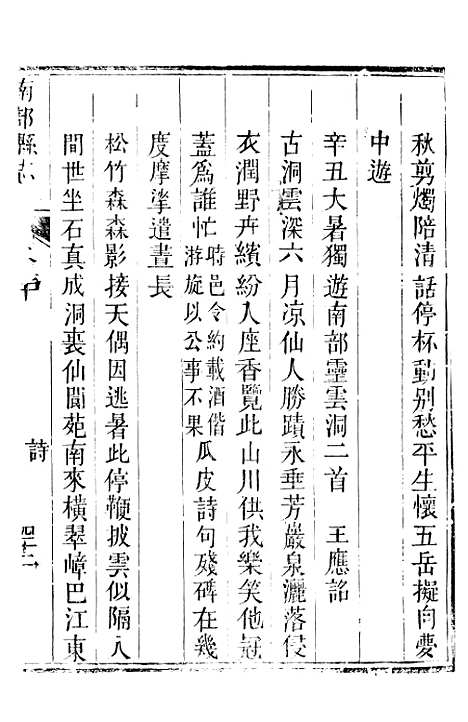 秋剪燭陪清話停杯動别愁平生懷五岳擬向夢
中遊
辛丑大暑獨遊南部靈雲洞二首　王應詔
古洞雲深六月凉仙人勝蹟永垂芳巖泉灑落侵
衣潤野卉繽紛入座香覽此山川供我樂笑他冠
蓋爲誰忙時邑令約載酒偕游旋以公事不果瓜皮詩句殘碑在幾
度摩挲遣晝長
松竹森森影接天偶因逃暑此停鞭披雲似隔人
間世坐石真成洞裏仙閬苑南來橫翠嶂巴江東
南部縣志
詩